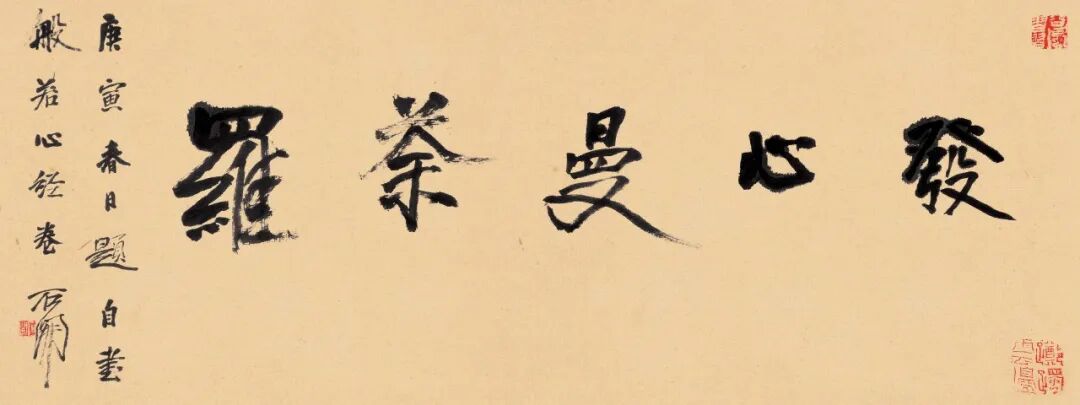 發心曼荼羅
庚寅春日題自書
般若心经卷 石開